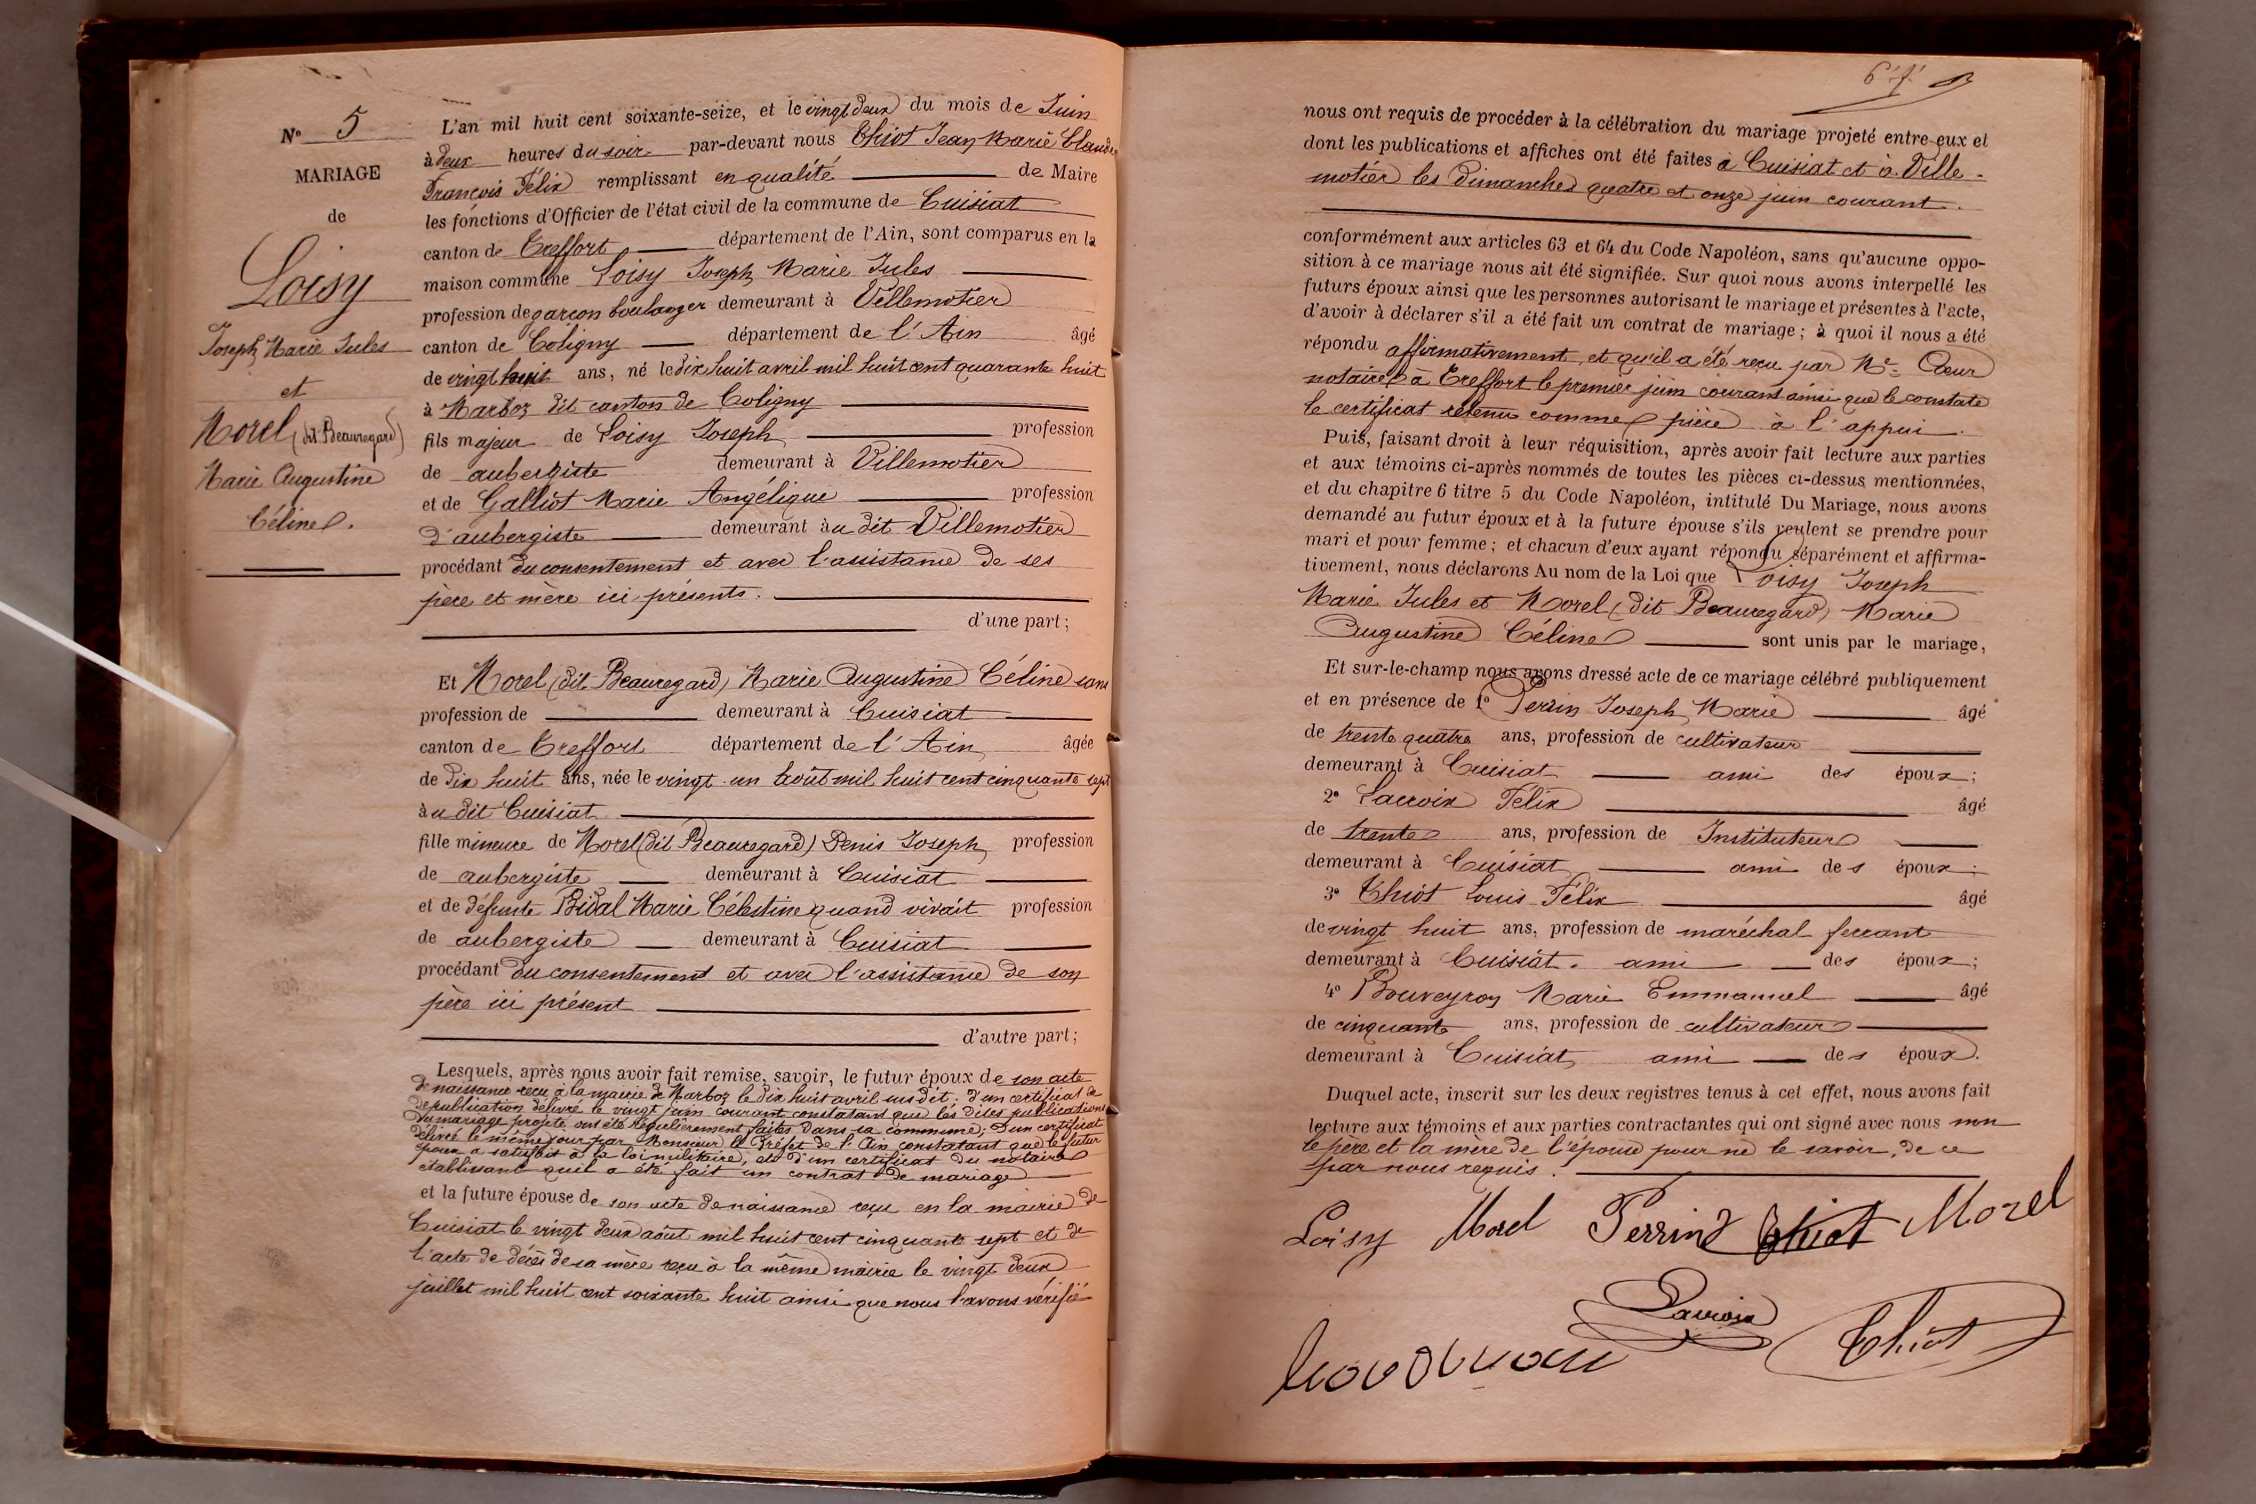 N° 5
MARIAGE
de
Loisy
Joseph Marie Jules
et
Morel (dit Beauregard)
Marie Augustine
Céline.
L'an mil huit cent soixante-seize, et le vingt deux du mois de Juin
à deux heures du soir par-devant nous Chiot Jean Marie Claude
François Félix remplissant en qualité de Maire
les fonctions d'Officier de l'état civil de la commune de Cuisiat
canton de Treffort département de l'Ain, sont comparus en la
maison commune Loisy Joseph Marie Jules
profession de garçon boulanger demeurant à Villemotier
canton de Coligny département de l'Ain âgé
de vingt huit ans, né le dix huit avril mil huit cent quarante huit
à Marboz dit canton de Coligny
fils majeur de Loisy Joseph profession
de aubergiste demeurant à Villemotier
et de Galliot Marie Angélique profession
d'aubergiste demeurant au dit Villemotier
procédant du consentement et avec l'assistance de ses
père et mère ici présents.
d'une part;
Et Morel (dit Beauregard) Marie Augustine Céline sans
profession de demeurant à Cuisiat
canton de Treffort département de l'Ain âgée
de dix huit ans, née le vingt-un août mil huit cent cinquante sept
au dit Cuisiat
fille mineure de Morel (dit Beauregard) Denis Joseph profession
de aubergiste demeurant à Cuisiat
et de défunte Bidal Marie Célestine quand vivait profession
de aubergiste demeurant à Cuisiat
procédant du consentement et avec l'assistance de son
père ici présent
d'autre part;
Lesquels, après nous avoir fait remise, savoir, le futur époux de son acte
de naissance reçu à la mairie de Marboz le dix huit avril susdit; d'un certificat de
de publication délivré le vingt juin courant constatant que les dites publications
du mariage projeté ont été régulièrement faites dans sa commune; d'un certificat
délivré le même jour par Monsieur le Préfet de l'Ain constatant que le futur
époux a satisfait à la loi militaire, et d'un certificat du notaire
établissant qu'il a été fait un contrat de mariage
et la future épouse de son acte de naissance reçu en la mairie de
Cuisiat le vingt deux août mil huit cent cinquante sept et de
l'acte de décès de sa mère reçu à la même mairie le vingt deux
juillet mil huit cent soixante huit ainsi que nous l'avons vérifié
nous ont requis de procéder à la célébration du mariage projeté entre eux et
dont les publications et affiches ont été faites à Cuisiat et à Ville-
motier les dimanches quatre et onze juin courant.
conformément aux articles 63 et 64 du Code Napoléon, sans qu'aucune oppo-
sition à ce mariage nous ait été signifiée. Sur quoi nous avons interpellé les
futurs époux ainsi que les personnes autorisant le mariage et présentes à l'acte,
d'avoir à déclarer s'il a été fait un contrat de mariage; à quoi il nous a été
répondu affirmativement, et qu'il a été reçu par Me Cœur
notaire à Treffort le premier juin courant ainsi que le constate
le certificat retenu comme pièce à l'appui.
Puis, faisant droit à leur réquisition, après avoir fait lecture aux parties
et aux témoins ci-après nommés de toutes les pièces ci-dessus mentionnées,
et du chapitre 6 titre 5 du Code Napoléon, intitulé Du Mariage, nous avons
demandé au futur époux et à la future épouse s'ils veulent se prendre pour
mari et pour femme; et chacun d'eux ayant répondu séparément et affirma-
tivement, nous déclarons Au nom de la Loi que Loisy Joseph
Marie Jules et Morel (dit Beauregard) Marie
Augustine Céline sont unis par le mariage,
Et sur-le-champ nous avons dressé acte de ce mariage célébré publiquement
et en présence de 1° Perrin Joseph Marie âgé
de trente quatre ans, profession de cultivateur
demeurant à Cuisiat ami des époux;
2° Lacroix Félix âgé
de trente ans, profession de Instituteur
demeurant à Cuisiat ami des époux;
3° Chiot Louis Félix âgé
de vingt huit ans, profession de maréchal ferrant
demeurant à Cuisiat. ami des époux;
4° Bouveyron Marie Emmanuel âgé
de cinquante ans, profession de cultivateur
demeurant à Cuisiat ami des époux.
Duquel acte, inscrit sur les deux registres tenus à cet effet, nous avons fait
lecture aux témoins et aux parties contractantes qui ont signé avec nous non
le père et la mère de l'époux pour ne le savoir, de ce
par nous requis.
Loisy Morel Perrin Chiot Morel
Lacroix
Chiot